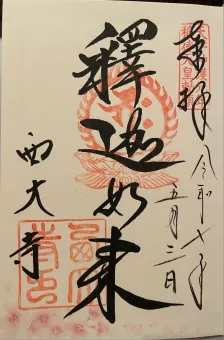 奉拝
令和七年
五月三日
釋迦如来
西大寺